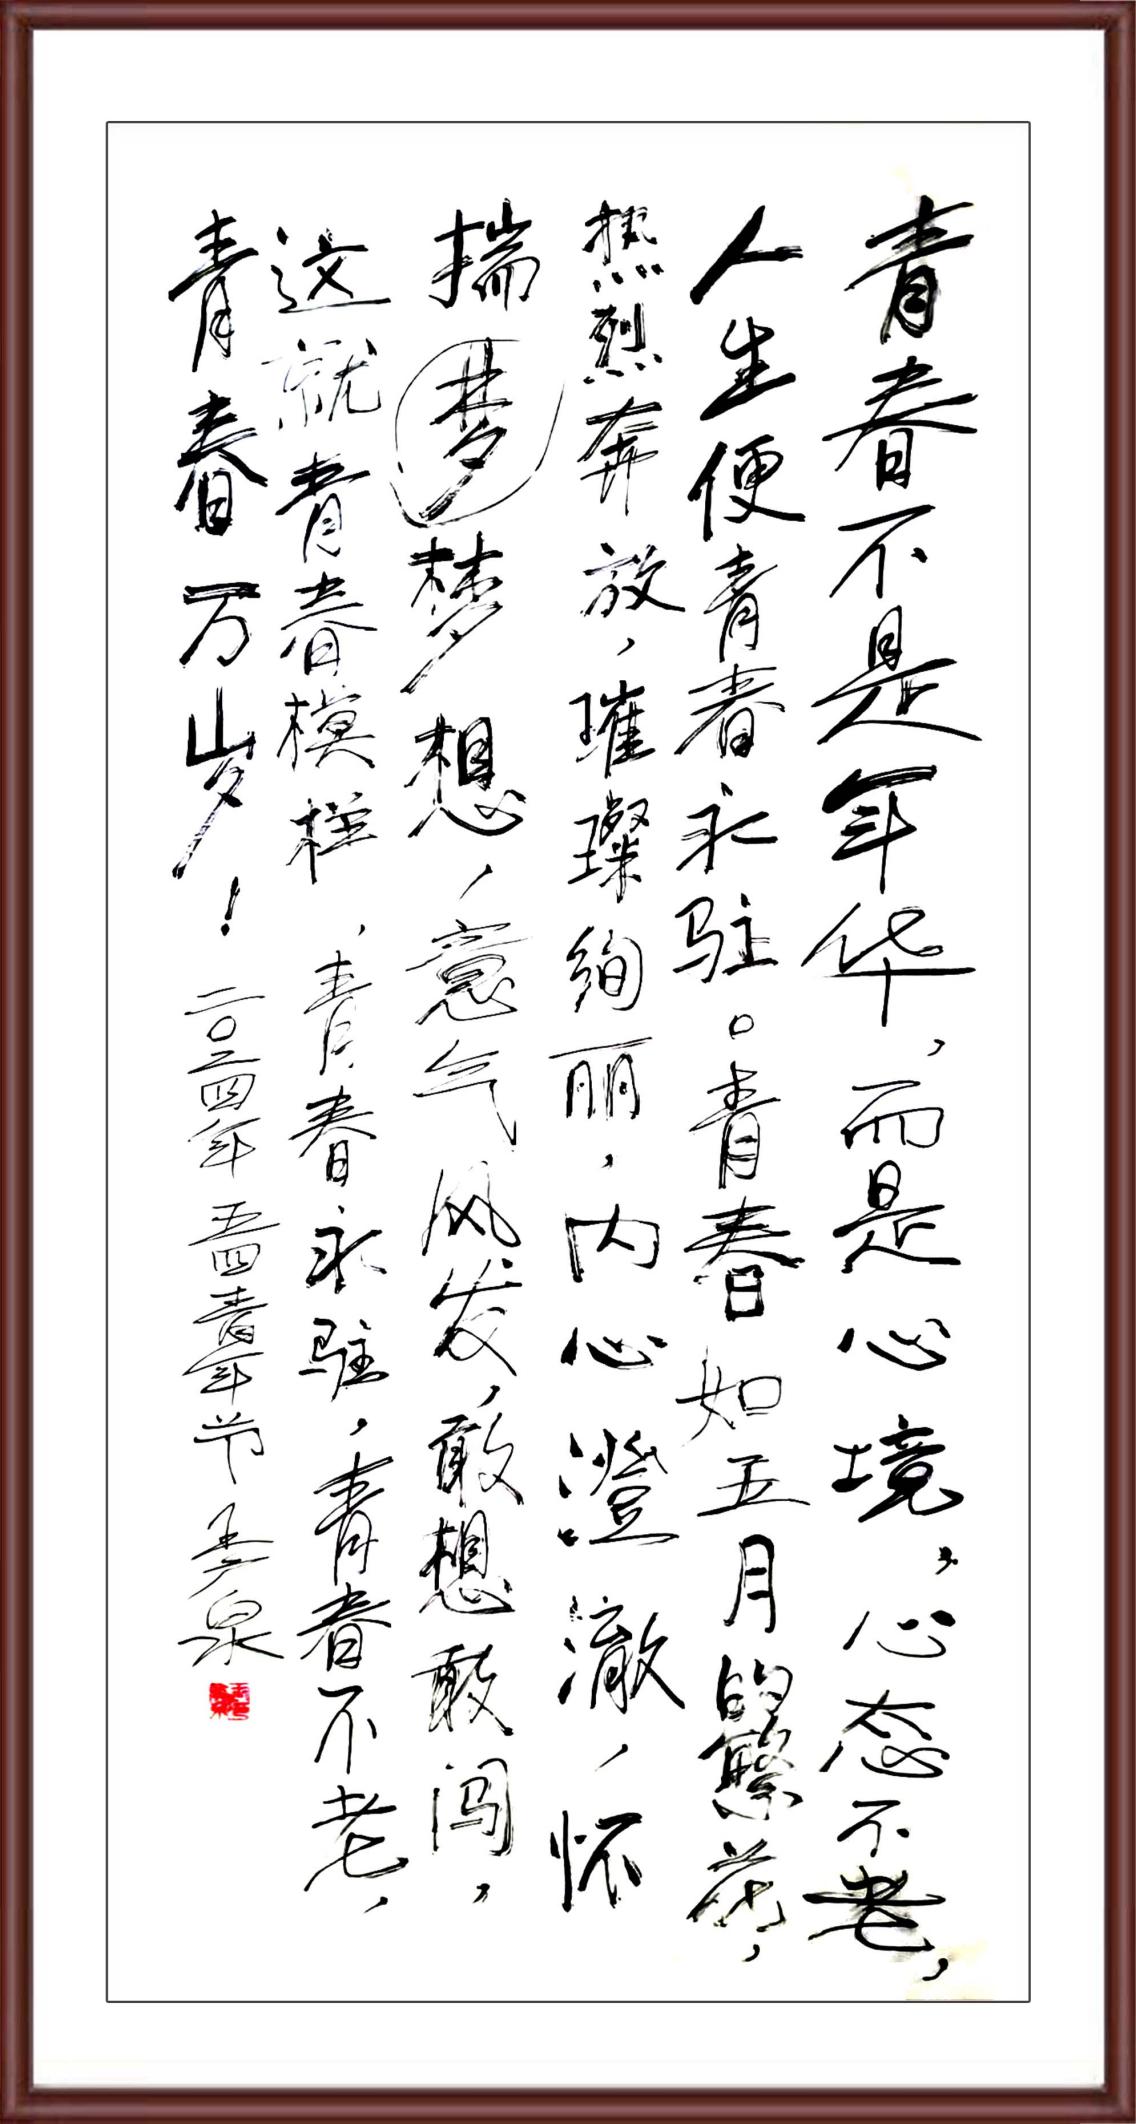 青春不是年华，而是心境，心态不老，
人生便青春永驻。青春如五月的繁花，
热烈奔放，璀璨绚丽，内心澄澈，怀
揣梦梦想，意气风发，敢想敢闯，
这就青春模样，青春永驻，青春不老，
青春万岁！二〇二四年五四青年节